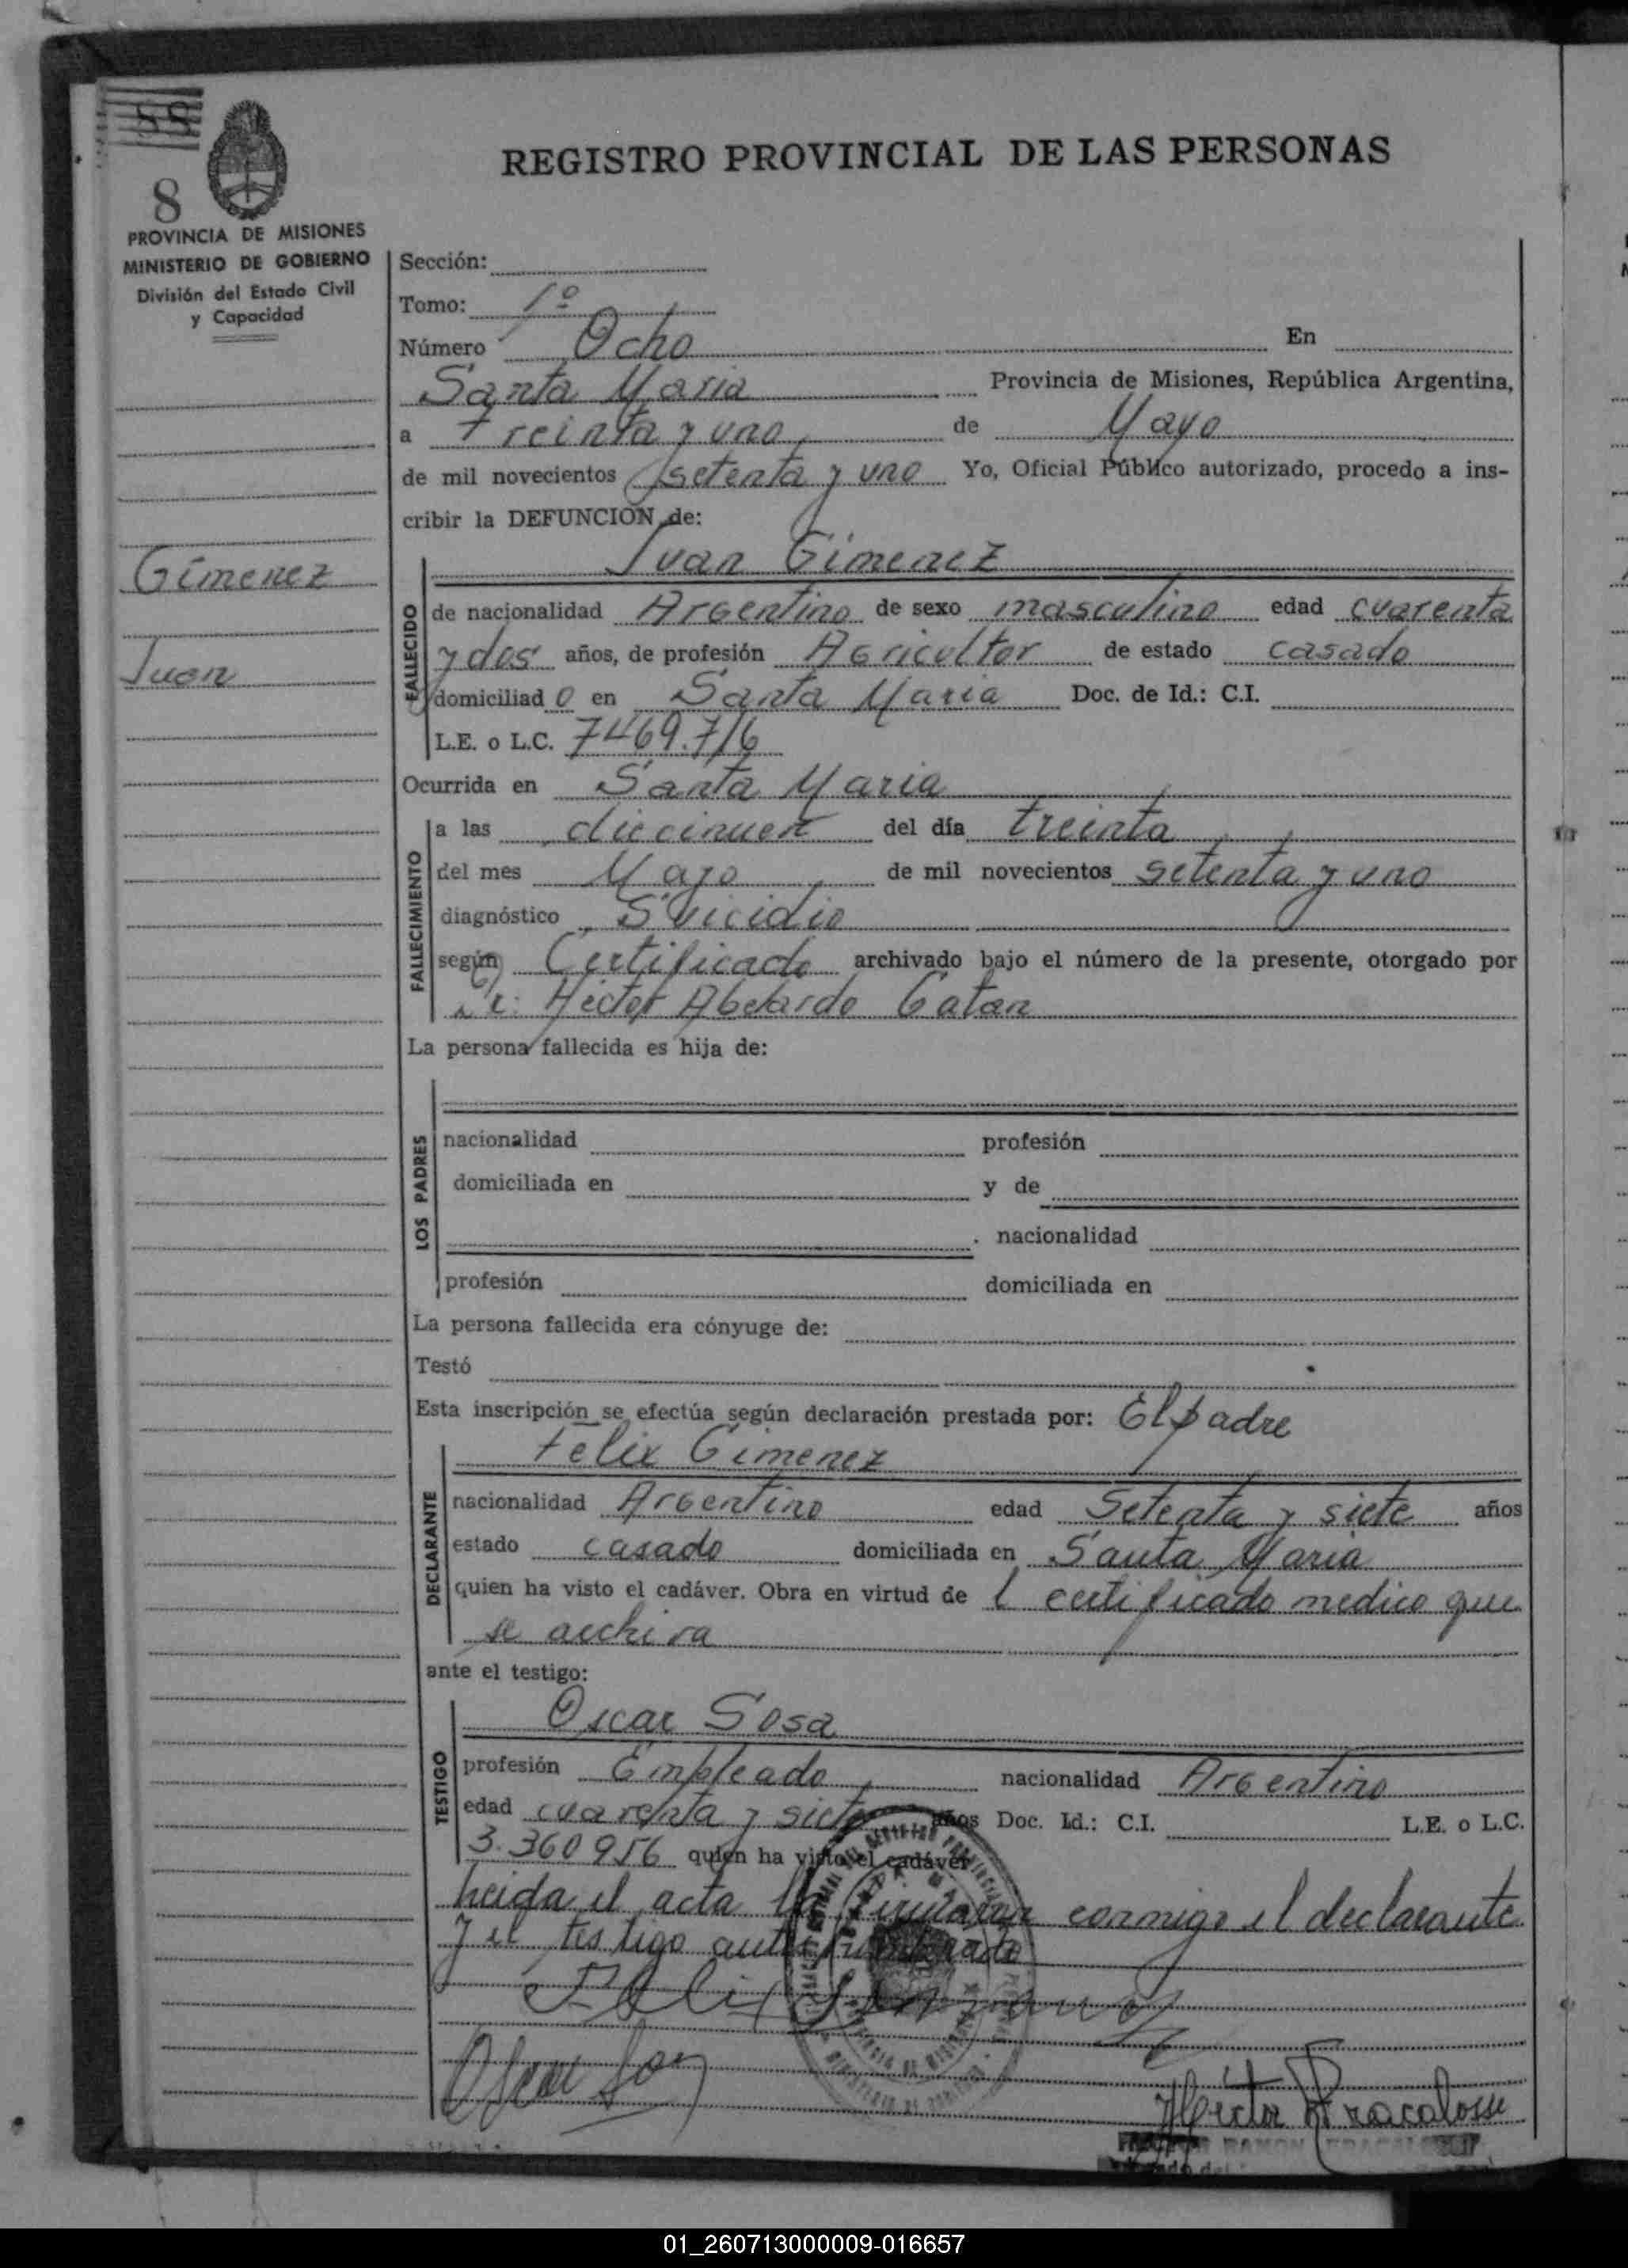 88
8
PROVINCIA DE MISIONES
MINISTERIO DE GOBIERNO
División del Estado Civil
y Capacidad
REGISTRO PROVINCIAL DE LAS PERSONAS
Sección:
Tomo: 1º
Número Ocho En
Santa Maria Provincia de Misiones, República Argentina,
a Treinta y uno de Mayo
de mil novecientos setenta y uno Yo, Oficial Público autorizado, procedo a ins-
cribir la DEFUNCION de:
Gimenez
Juan
FALLECIDO
Juan Gimenez
de nacionalidad Argentino de sexo masculino edad cuarenta
y dos años, de profesión Agricultor de estado casado
domiciliad o en Santa Maria Doc. de Id.: C.I.
L.E. o L.C. 7469.716
Ocurrida en Santa Maria
FALLECIMIENTO
a las del día treinta
del mes Mayo de mil novecientos setenta y uno
diagnóstico Suicidio
según Certificado archivado bajo el número de la presente, otorgado por
Hector Abelardo Catan
La persona fallecida es hija de:
LOS PADRES
nacionalidad profesión
domiciliada en y de
nacionalidad
profesión domiciliada en
La persona fallecida era cónyuge de:
Testó
Esta inscripción se efectúa según declaración prestada por: El padre
DECLARANTE
Felix Gimenez
nacionalidad Argentino edad Setenta y siete años
estado casado domiciliada en Santa Maria
quien ha visto el cadáver. Obra en virtud de l certificado medico que
se archiva
ante el testigo:
TESTIGO
Oscar Sosa
profesión Empleado nacionalidad Argentino
edad cuarenta y siete años Doc. Id.: C.I. L.E. o L.C.
3.360956 quien ha visto el cadáver
heida el acta la conmigo el declarante
y el testigo
Hector Fracalossi
RAMON FRACALOSSI
01_260713000009-016657